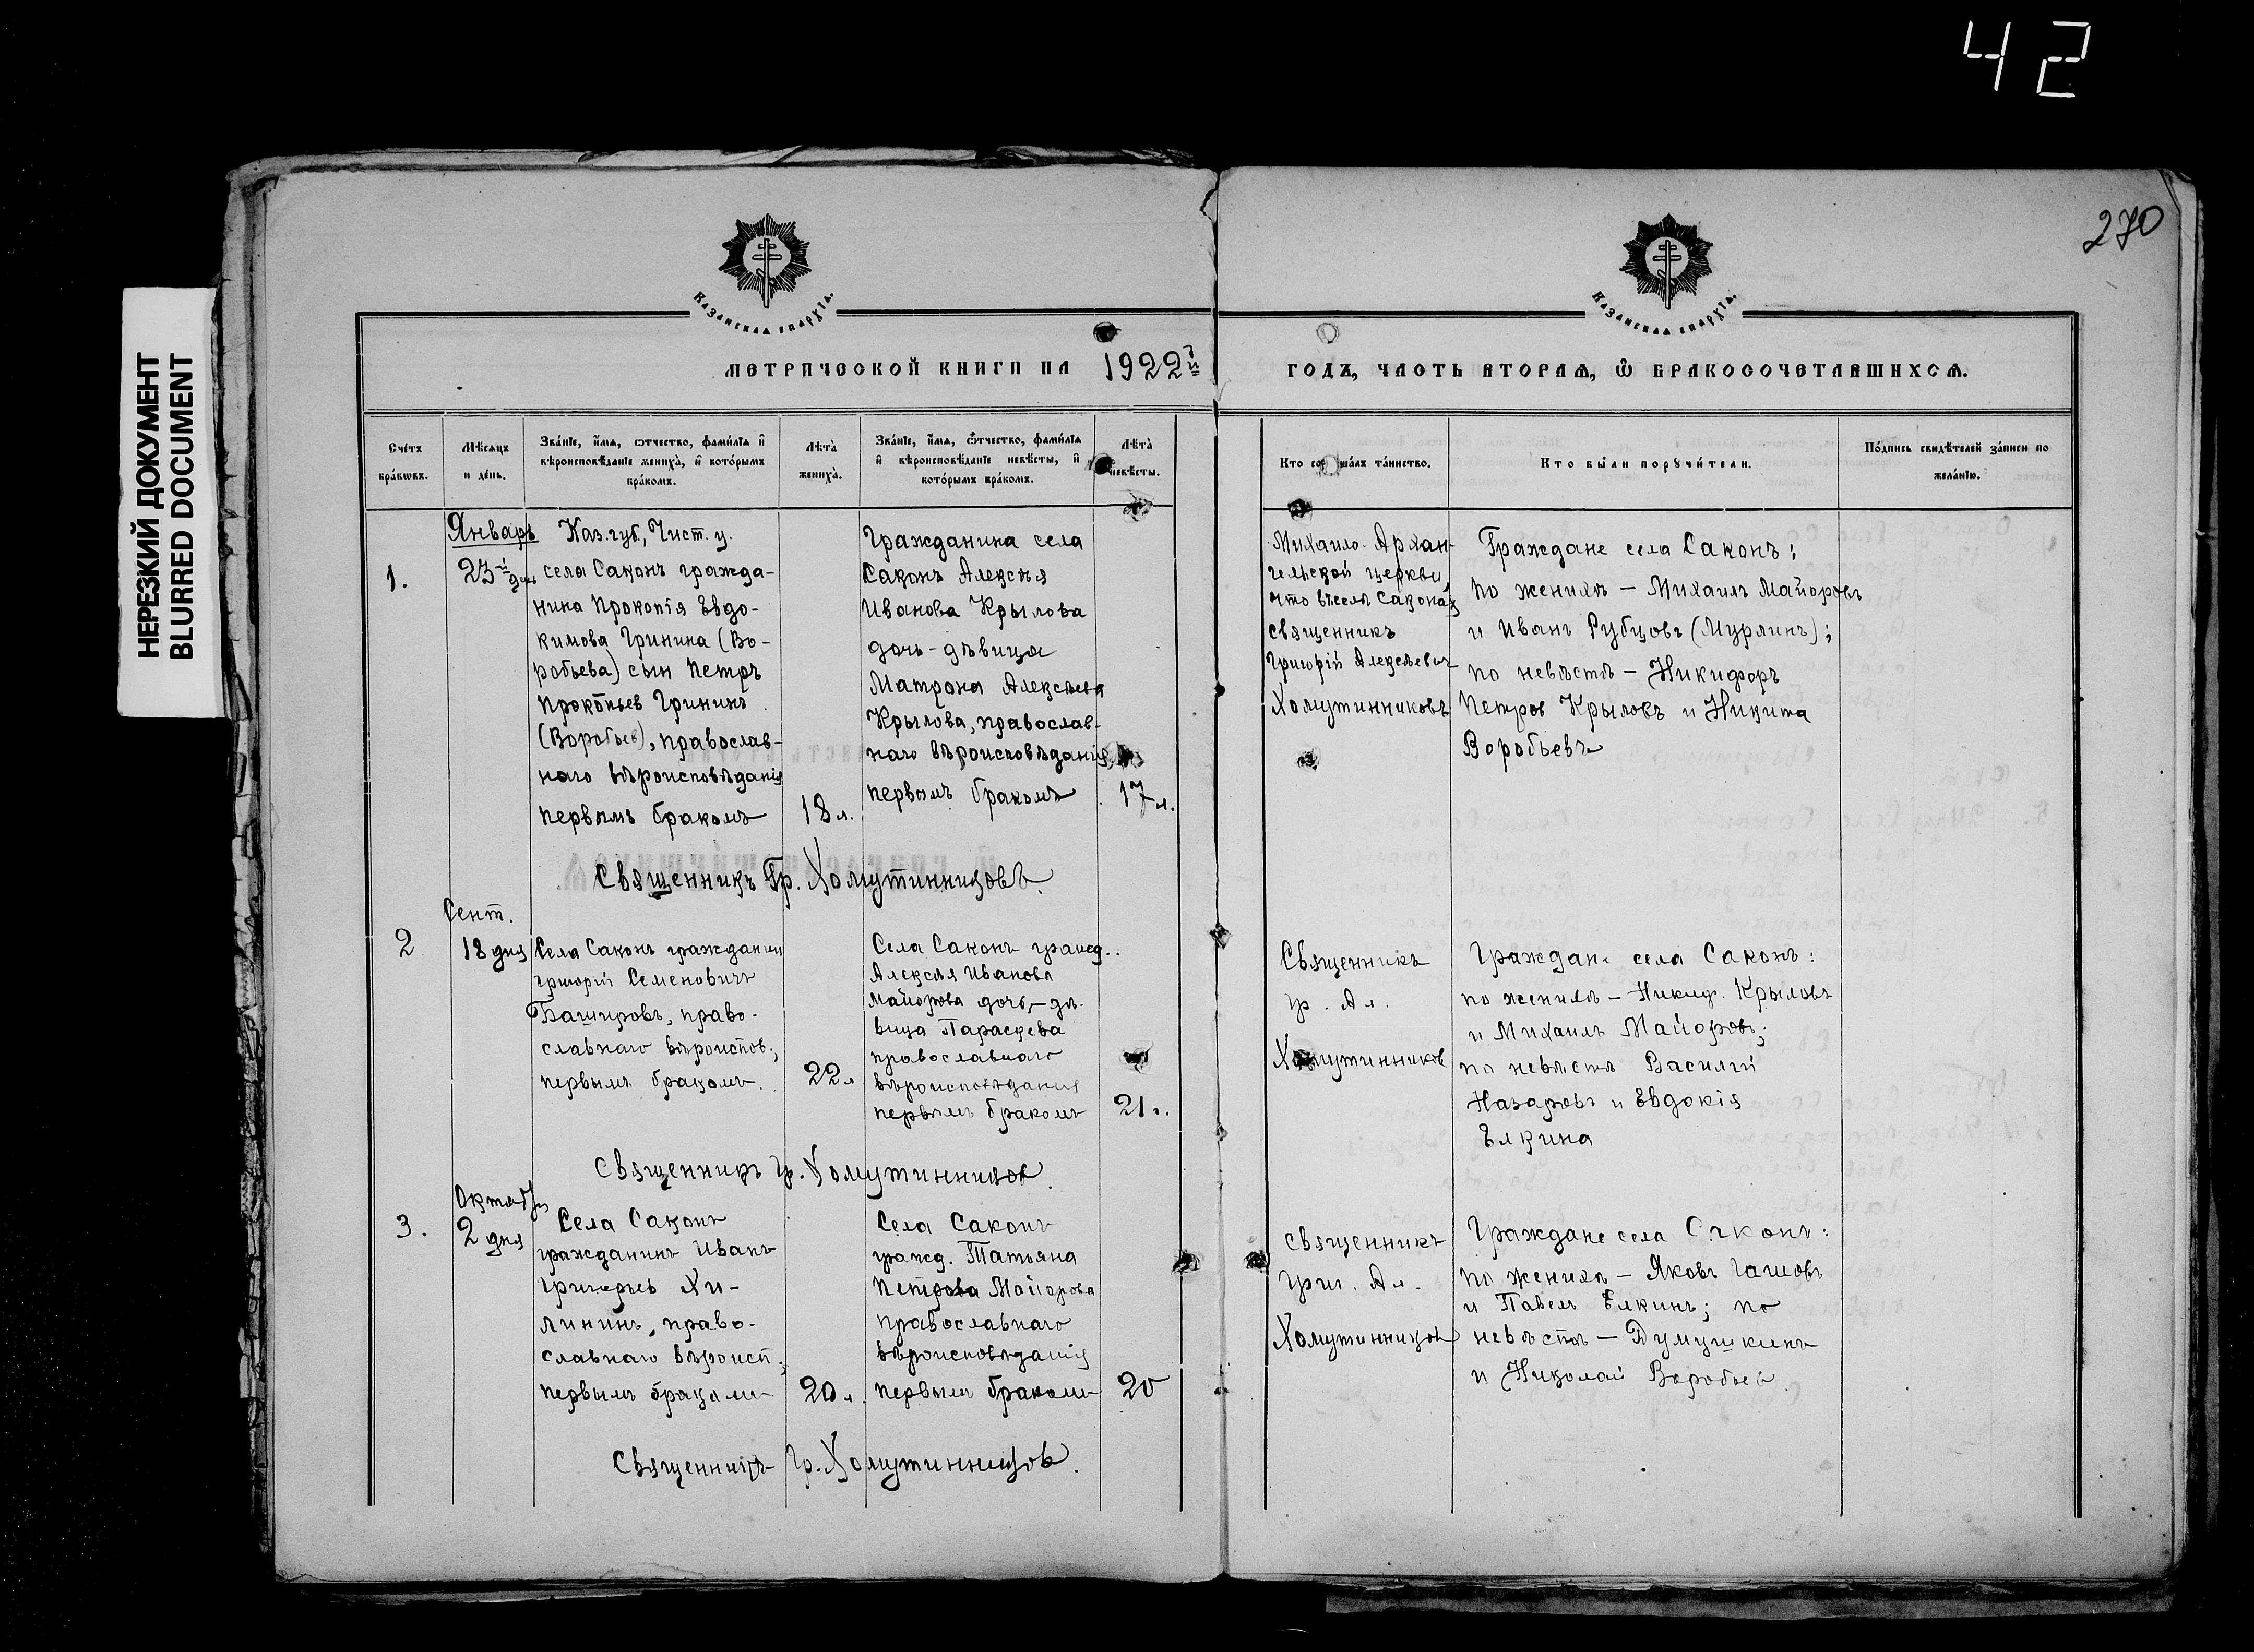 42
270
НЕРЕЗКИЙ ДОКУМЕНТ
BLURRED DOCUMENT
Казанская епархїа.
Казанская епархїа.
МЕТРИЧЕСКОЙ КНИГИ НА 1922й
ГОДЪ, ЧАСТЬ ВТОРАЯ, Ѿ БРАКОСОЧЕТАВШИХСЯ.
Счетъ
браковъ.
Мѣсяцъ
и день.
Званїе, имя, отчество, фамилїя и
вѣроисповѣданїе жениха, и которымъ
бракомъ.
Лѣта
жениха.
Званїе, имя, отчество, фамилїя
и вѣроисповѣданїе невѣсты, и
которымъ бракомъ.
Лѣта
невѣсты.
Кто совершалъ таинство.
Кто были поручители.
Подпись свидѣтелей записи по
желанїю.
1.
Январь
23й дня
Каз. губ., Чист. у.
села Саконъ гражда-
нина Прокопія Евдо-
кимова Гринина (Во-
робьева) сын Петръ
Прокопьев Грининъ
(Воробьев), православ-
наго вѣроисповѣданія
первымъ бракомъ
18 л.
Гражданина села
Саконъ Алексѣя
Иванова Крылова
дочь-дѣвица
Матрона Алексѣева
Крылова, православ-
наго вѣроисповѣданія,
первымъ бракомъ
17 л.
Михаило-Архан-
гельской церкви
что въ селѣ Саконахъ
священникъ
Григорій Алексѣевич
Хомутинниковъ
Граждане села Саконъ:
по женихѣ – Михаилъ Майоровъ
и Иванъ Рубцовъ (Мурлинъ);
по невѣстѣ – Никифоръ
Петров Крыловъ и Никита
Воробьевъ
Священникъ Гр. Хомутинниковъ.
2
Сент.
18 дня
Села Саконъ гражданин
Григорій Семеновичъ
Башировъ, право-
славнаго вѣроиспов.,
первымъ бракомъ.
22 л
Села Саконъ гражд.
Алексѣя Иванова
Майорова дочь – дѣ-
вица Параскева
православнаго
вѣроисповѣдания
первымъ бракомъ
21 г.
Священникъ
Гр. Ал.
Хомутинников
Граждане села Саконъ:
по женихѣ – Никиф. Крыловъ
и Михаилъ Майоров;
по невѣстѣ Василий
Назаровъ и Евдокія
Елкина
Священникъ Гр. Хомутинников.
3.
Октября
2 дня
Села Саконъ
гражданинъ Иванъ
Григорьев Хи-
лининъ, право-
славнаго вѣроисп.;
первымъ бракомъ
20 л.
Села Саконъ
гражд. Татьяна
Петрова Майорова
православнаго
вѣроисповѣданія
первымъ бракомъ
20
Священникъ
Григ. Ал.
Хомутинников
Граждане села Саконъ:
по женихѣ – Яковъ Гашовъ
и Павелъ Елкинъ; по
невѣстѣ – Думушкинъ
и Николай Воробьев.
Священникъ Гр. Хомутинников.